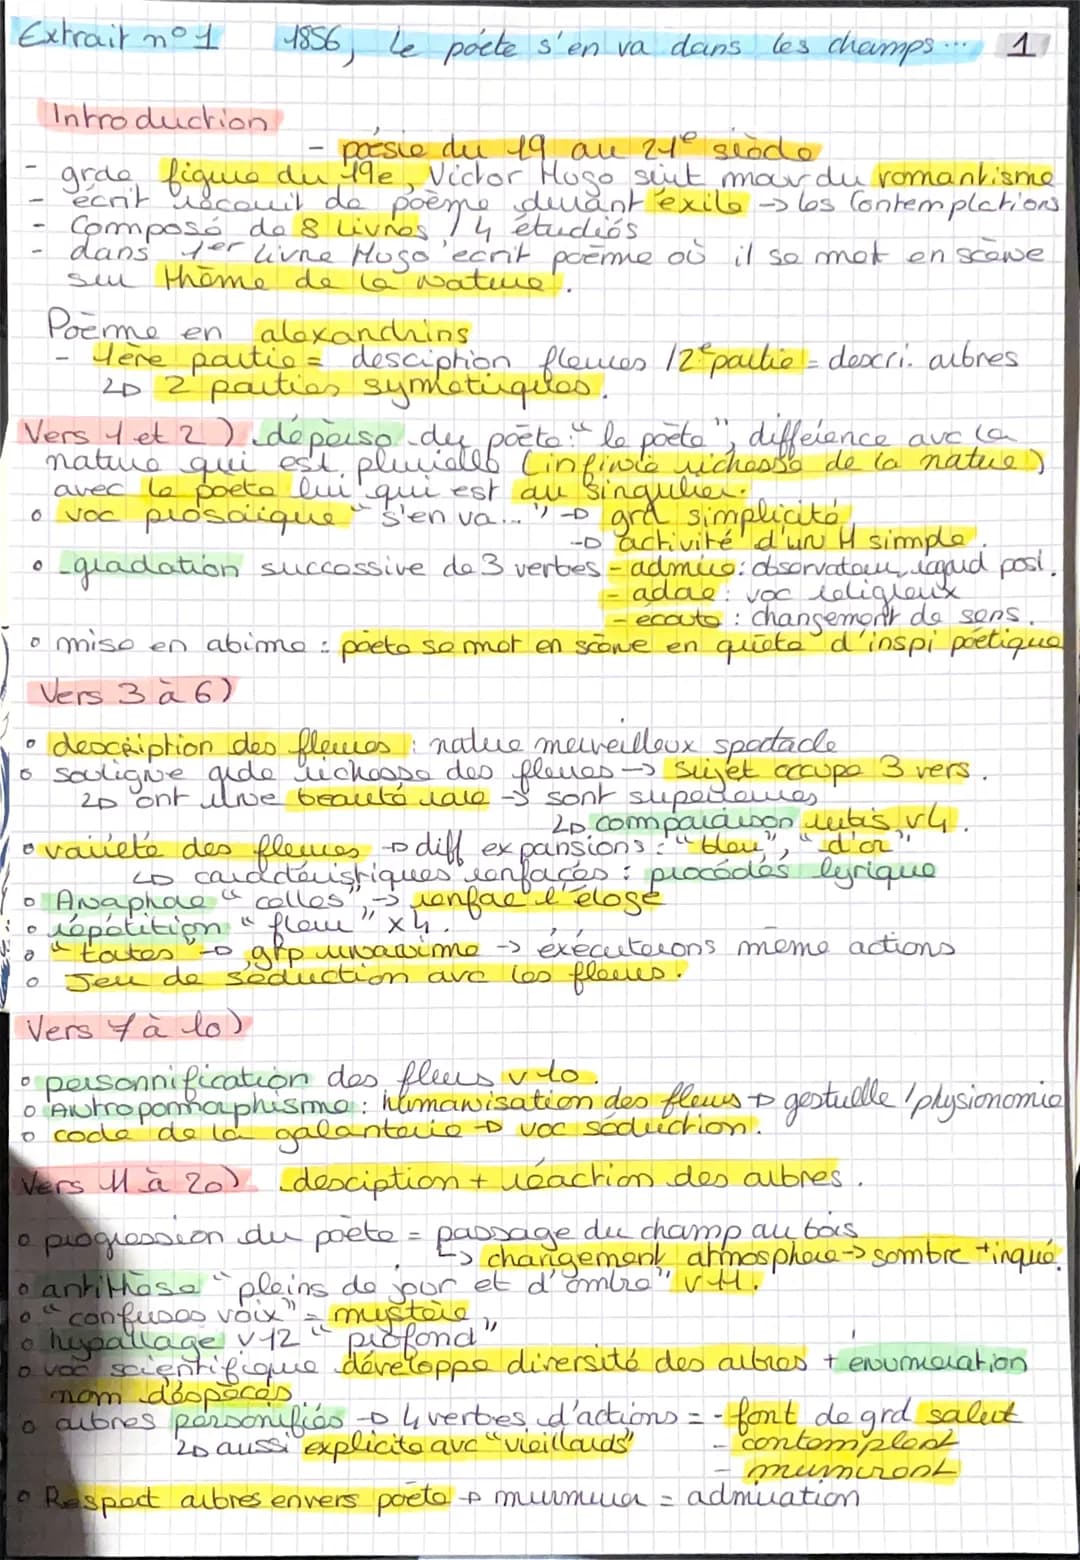 Extrait n°1 1856, Le poète s'en va dans les champs... 1
Introduction
- poésie du 19 au 21e siècle
- grde figure du 19e, Victor Hugo suit mouv du romantisme
- écrit recueil de poème durant exile → les Contemplations
- Composé de 8 Livres / 4 étudiés
- dans 1er livre Hugo écrit poème où il se met en scène
sur thème de la Nature.
Poème en alexandrins
- 1ère partie = desciption fleurs / 2e partie = descri. arbres
↳ 2 parties symetriques.
Vers 1 et 2) dépeiso du poète: "le poète", différence avc la
nature qui est plurielle (infinie richesse de la nature)
avec le poète lui qui est au singulier.
o voc prosaïque "s'en va..." → grd simplicité
→ activité d'un H simple.
o gradation successive de 3 verbes - admire: observateur, regard posi.
- adore: voc religieux
- ecoute: changement de sens.
o mise en abime: poète se met en scène en quête d'inspi poétique
Vers 3 à 6)
o description des fleurs: nature merveilleux spectacle
o souligne grde richesse des fleurs → sujet occupe 3 vers.
↳ ont une beauté rare → sont superieures
↳ comparaison rubis v4.
o variété des fleures → diff expansions: "bleu", "d'or"
↳ caractéristiques renfacés: procédés lyrique
o Anaphore "celles", → renforce l'éloge
o répétition "fleur" x4.
o "toutes" → grp unanime → exécuterons même actions
o Jeu de séduction avc les fleurs.
Vers 7 à 10)
o personnification des fleurs v10.
o Antropomorphisme: humanisation des fleurs → gestuelle / physionomie
o code de la galanterie → voc séduction.
Vers 11 à 20) desciption + réaction des arbres.
o progression du poète = passage du champ au bois
↳ changement atmosphere → sombre + inqué.
o antithèse "pleins de jour et d'ombre" v11.
o "confuses voix" = mystère
o hypallage v12 "profond"
o voc scientifique développe diversité des arbres + enumeration
nom d'éspèces
o arbres personifiés → 4 verbes d'actions = - font de grd salut
↳ aussi explicite avc "vieillards" - contemplent
- murmront
o Respect arbres envers poète → murmurer = admiration